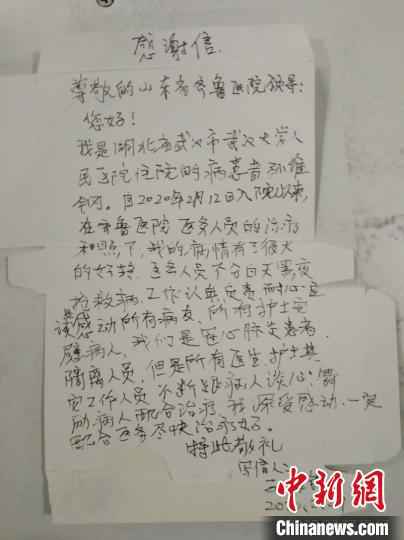 感谢信
尊敬的山东省齐鲁医院领导:
您好!
我是湖北省武汉市武汉大学人
民医院住院的病患者孙
自2020年2月12日入院以来,
在齐鲁医院医务人员的治疗
和照下,我的病情有了很大
的好转,医务人员不分白天黑夜
抢救病,工作认真负责耐心至
诚感动所有病友,所有护士安
慰病人,我们是冠心肺炎患者,
隔离人员,但是所有医生护士其
实工作人员不断给病人谈心,鼓
励病人配合治疗,我深受感动,一定
配合医务尽快治疗好。
特此敬礼
写信人:
中新网
Chinanews.com